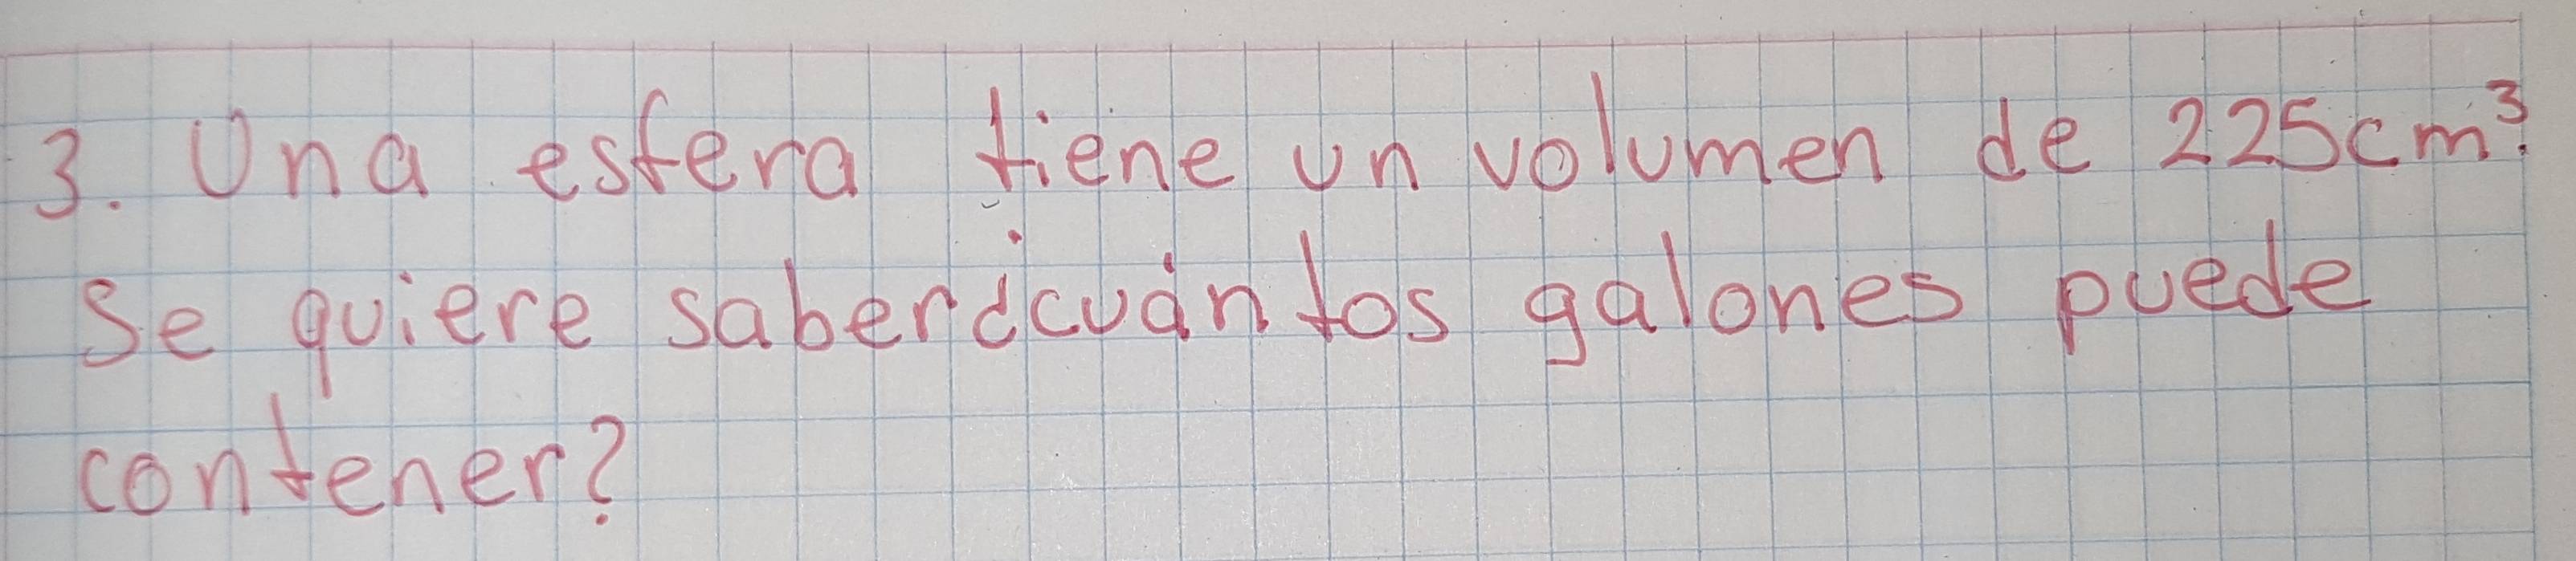 3. Una esfera tiene un volumen de 225cm³.
Se quiere saber¿cuántos galones puede
contener?